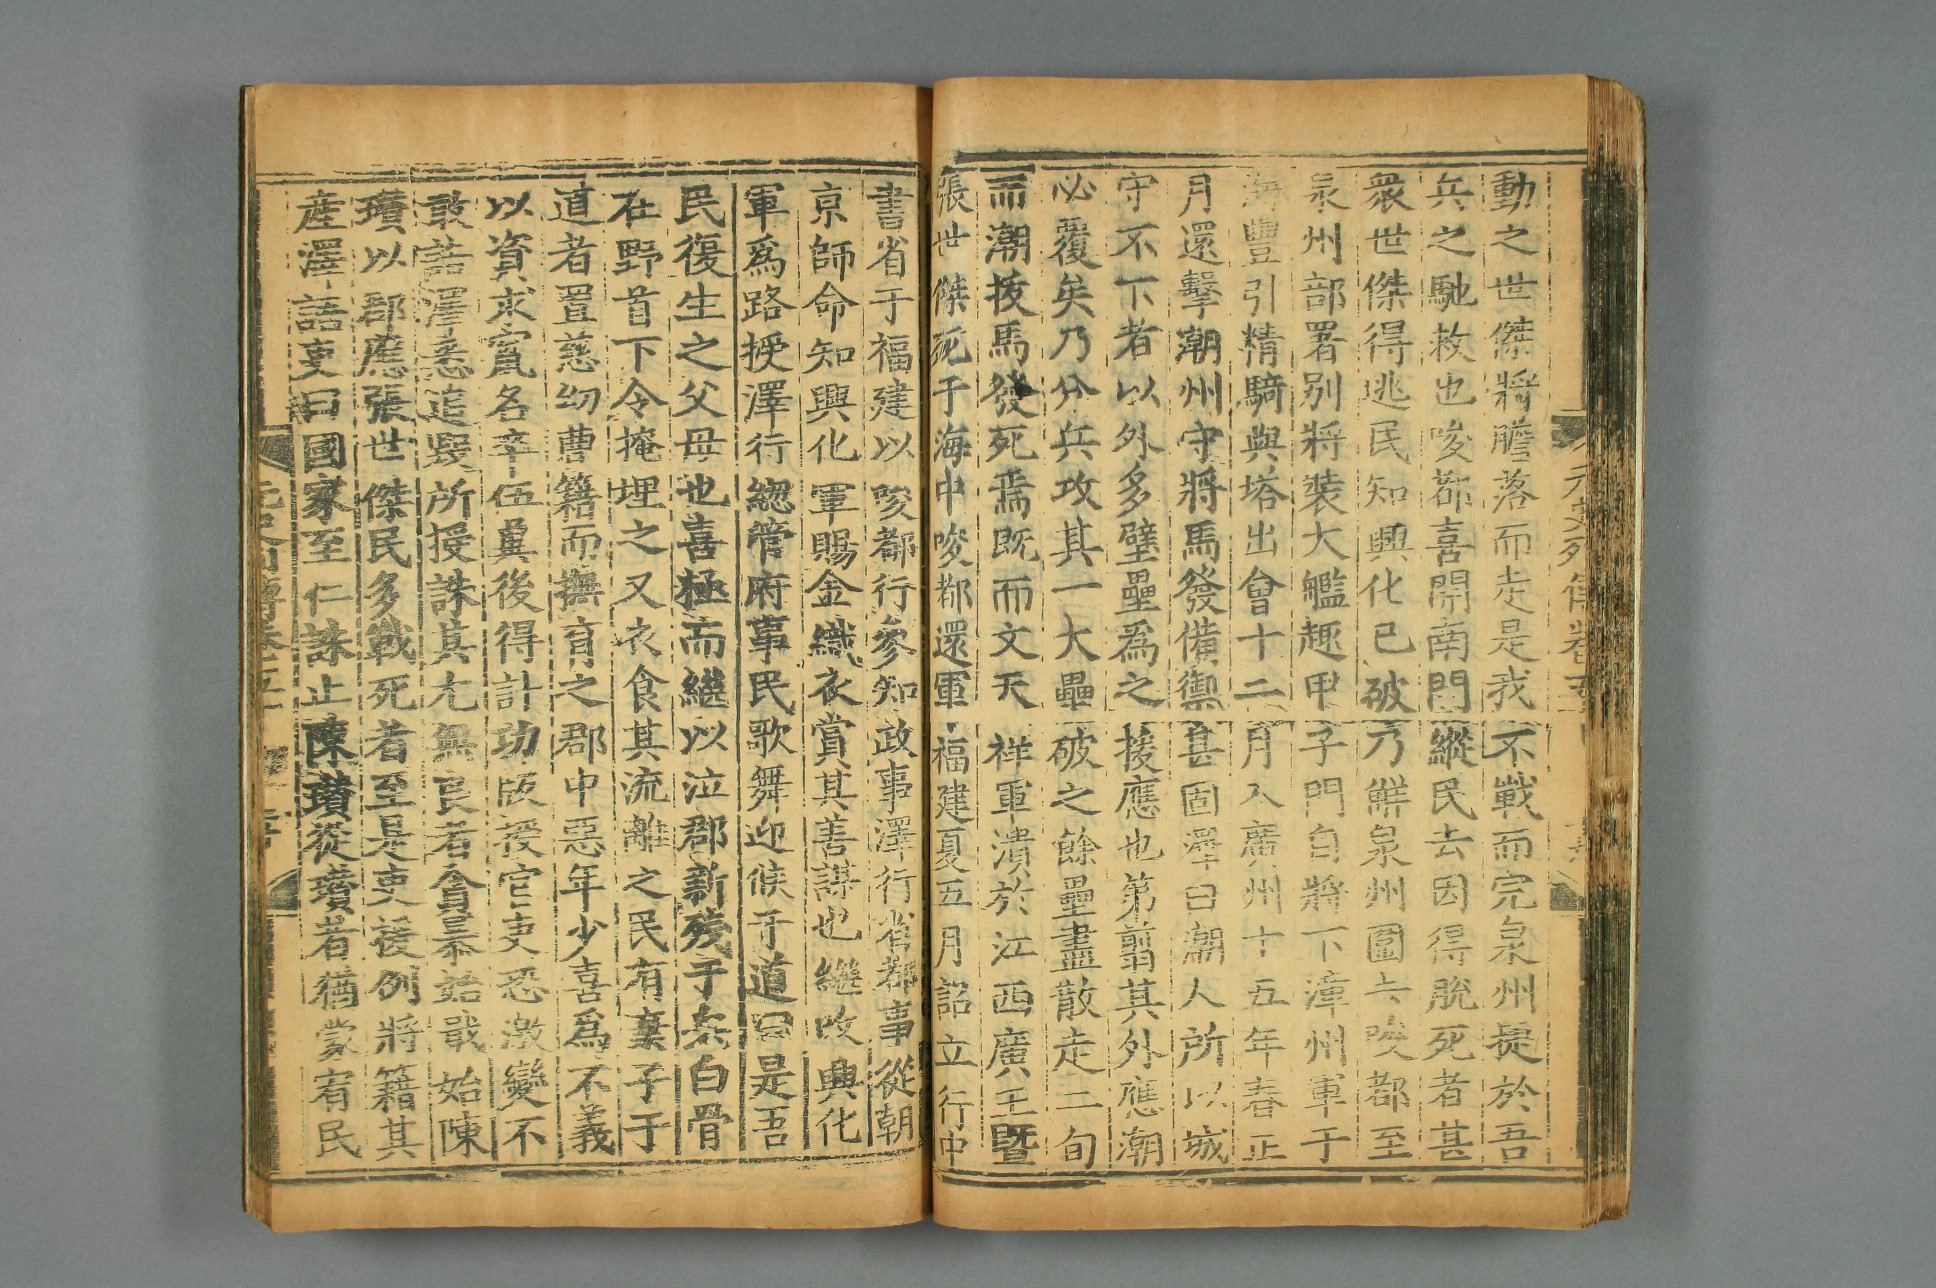 動之世傑將膽落而走是我不戰而完泉州㨗於吾
兵之馳救也唆都喜開南門縱民去因得脫死者甚
衆世傑得逃民知興化已破乃解泉州圍去唆都至
泉州部署别將裝大艦趣甲子門自將下漳州軍于
海豐引精騎與塔出會十二月入廣州十五年春正
月還擊潮州守將馬發備禦甚固澤曰潮人所以城
守不下者以外多壁壘爲之援應也第翦其外應潮
必覆矣乃分兵攻其一大壘破之餘壘盡散走二旬
而潮拔馬發死焉既而文天祥軍潰於江西廣王暨
張世傑死于海中唆都還軍福建夏五月詔立行中
書省于福建以唆都行參知政事澤行省都事從朝
京師命知興化軍賜金織衣賞其善謀也繼改興化
軍爲路授澤行緫管府事民歌舞迎候于道曰是吾
民復生之父母也喜極而繼以泣郡新殘于兵白骨
在野首下令掩埋之又衣食其流離之民有棄子于
道者置慈幼曹籍而撫育之郡中惡年少喜爲不義
以資求竄名卒伍兾後得計功版授官吏恐激變不
敢詰澤悉追毀所授誅其尤無良者貪暴始戢始陳
瓚以郡應張世傑民多戰死者至是吏援例將籍其
産澤語吏曰國家至仁誅止陳瓚從瓚者猶蒙宥民